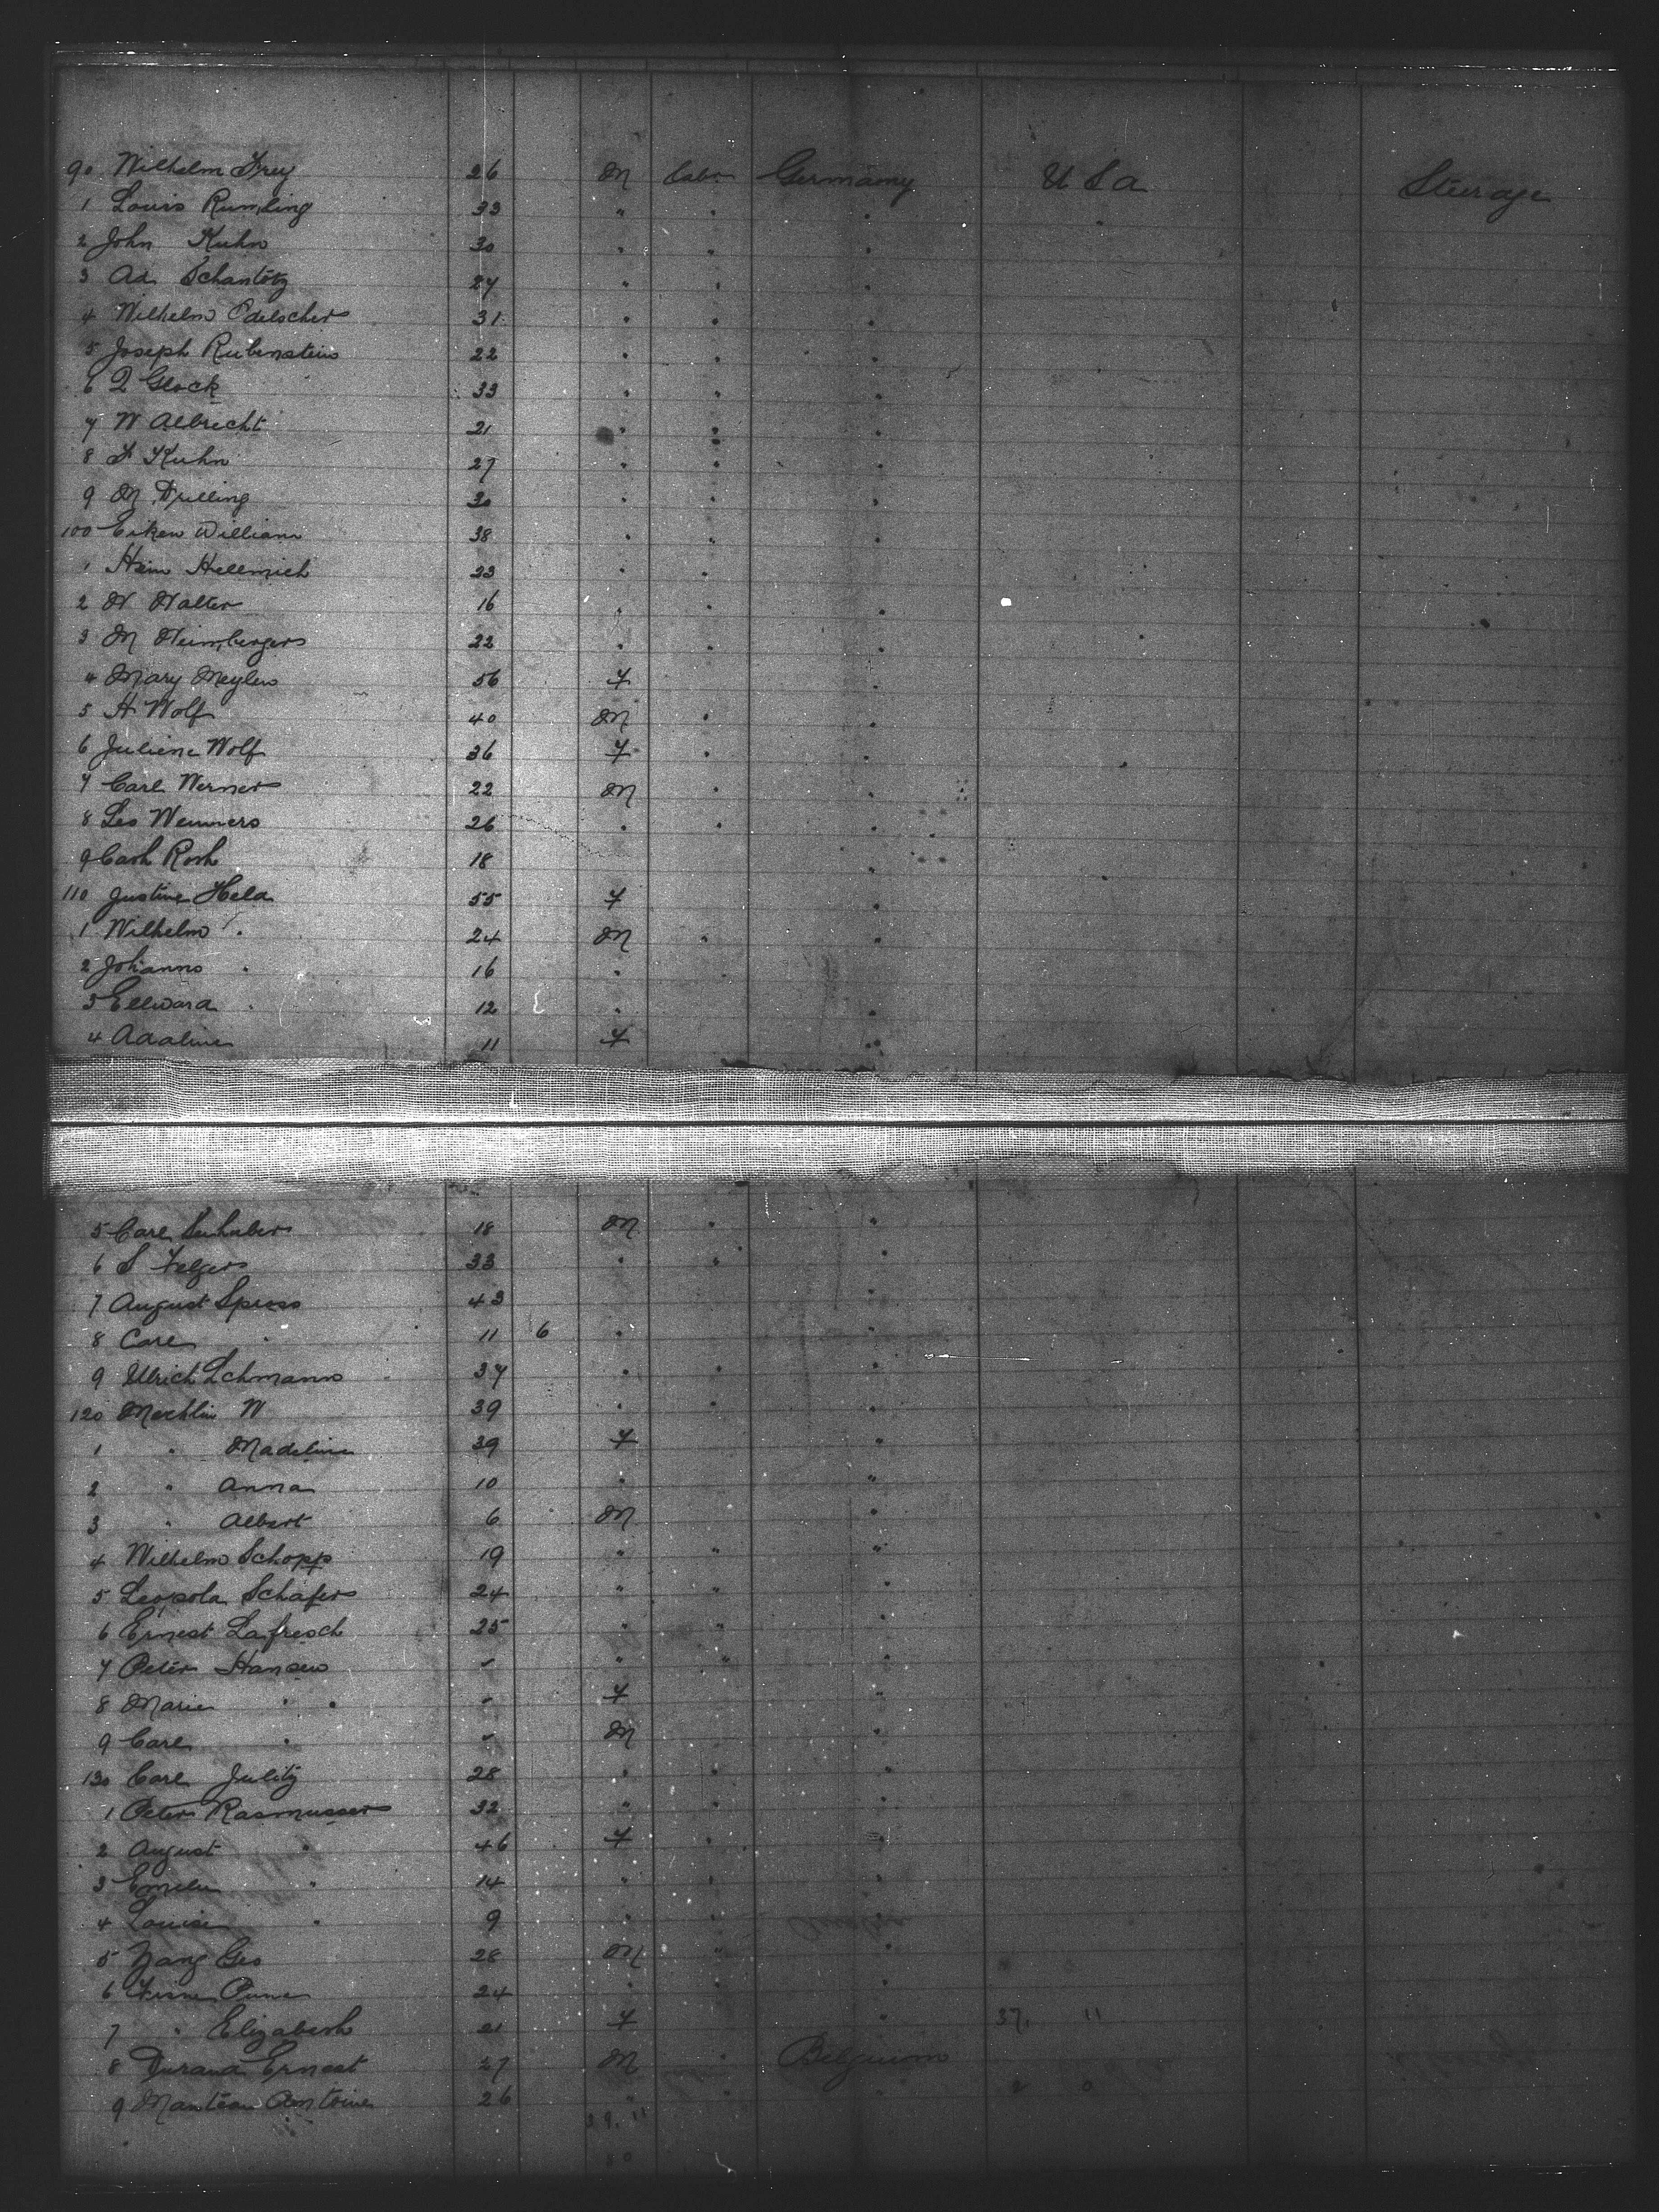 90 Wilhelm Frey 26 M Labr Germany U S a Steerage
1 Louis Rumling 33 " " "
2 John Kuhn 30 " " "
3 Ad. 27 " " "
4 Wilhelm 31 " " "
5 Joseph Rubenstein 22 " " "
6 Glock 33 " " "
7 W Albrecht 21 " " "
8 F Kuhn 27 " " "
9 M 30 " " "
100 Eiken William 38 " " "
1 Hein Hellmich 23 " "
2 W Walter 16 " " "
3 M Heimberger 22 " " "
4 Mary Meylen 56 F "
5 H Wolf 40 M " "
6 Juliene Wolf 36 F " "
7 Carl Werner 22 M " "
8 Leo 26 " " "
9 18 "
110 Justine Held 55 F "
1 Wilhelm " 24 M " "
2 Johanns " 16 "
3 Edward " 12 " "
4 Adaline 11 F "
5 Carl 18 M " "
6 S Felger 33 " " "
7 August Spress 43 "
8 Carl " 11 6 " "
9 Ulrich Lehmann 37 " " "
120 Mechlin W 39 " " "
1 " Madeline 39 F "
2 " Anna 10 " "
3 " Albert 6 M "
4 Wilhelm Schopp 19 " " "
5 Leopold Schafer 24 " " "
6 Ernest Lafresch 25 " "
7 Peter Hansen " " "
8 Marie " F "
9 Carl " M "
130 Carl Julitz 28 " " "
1 Peter Rasmussen 32 " " "
2 August " 46 F " "
3 Emelie " 14 " " "
4 Louise " 9 " " "
5 Zang Geo 28 M " "
6 24 " " "
7 " Elizabeth 21 F " 37. 11
8 Durand Ernest 27 M " Belgium
9 Manteau Antoine 26 " " " 2 0
39. 11